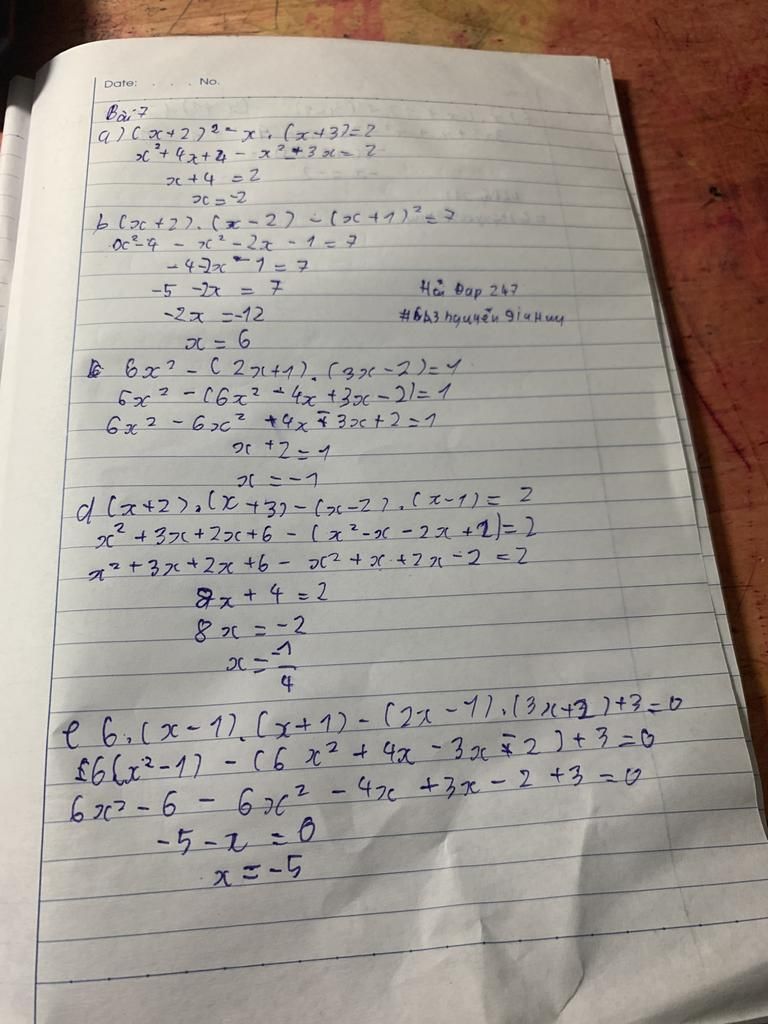 Date: . . . No.
Bài 7
a) (x+2)² - x . (x+3) = 2
x² + 4x + 4 - x² - 3x = 2
x + 4 = 2
x = -2
b (x+2) . (x-2) - (x+1)² = 7
x² - 4 - x² - 2x - 1 = 7
-4 - 2x - 1 = 7
-5 - 2x = 7
Hỏi Đáp 247
-2x = -12
#6A3 nguyễn gia Huy
x = 6
c 6x² - (2x+1) . (3x-2) = 1
6x² - (6x² - 4x + 3x - 2) = 1
6x² - 6x² + 4x - 3x + 2 = 1
x + 2 = 1
x = -1
d (x+2) . (x+3) - (x-2) . (x-1) = 2
x² + 3x + 2x + 6 - (x² - x - 2x + 2) = 2
x² + 3x + 2x + 6 - x² + x + 2x - 2 = 2
8x + 4 = 2
8x = -2
x = -1/4
e 6 . (x-1) . (x+1) - (2x-1) . (3x+2) + 3 = 0
6(x² - 1) - (6x² + 4x - 3x - 2) + 3 = 0
6x² - 6 - 6x² - 4x + 3x - 2 + 3 = 0
-5 - x = 0
x = -5